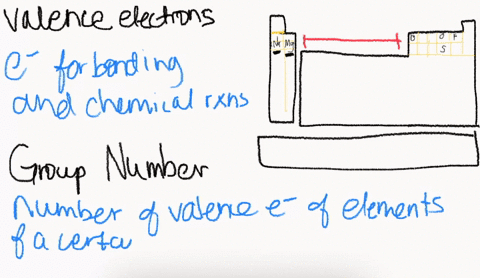 valence electrons
e⁻ for bonding
and chemical rxns
Group Number
number of valence e⁻ of elements
of a certa
Mg
O F
S